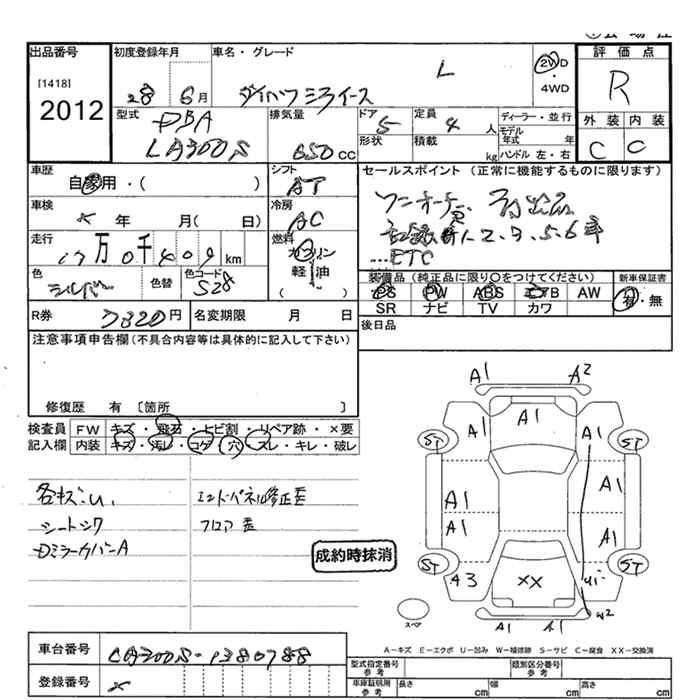 出品番号
[1418]
2012
初度登録年月
28 6月
車名・グレード
ダイハツ ミライース L
2WD
・4WD
評価点
R
型式
DBA
LA300S
排気量
650 CC
ドア
5
形状
定員
4 人
積載
kg
ディーラー・並行
モデル年式 年
ハンドル 左・右
外装
C
内装
C
車歴
自家用・( )
車検
年 月( 日)
走行
17万0千409 km
色
シルバー
色替
色コード
S28
シフト
AT
冷房
AC
燃料
ガソリン
軽油
( )
セールスポイント (正常に機能するものに限ります)
ワンオーナー
2.3.5.6年
ETC
装備品 (純正品に限り〇をつけてください)
新車保証書
PS PW ABS エアB AW
有・無
SR ナビ TV カワ
R券
7320円
名変期限 月 日
後日品
注意事項申告欄 (不具合内容等は具体的に記入して下さい)
修復歴 有 〔箇所 〕
検査員記入欄
FW キズ・飛石・ヒビ割・リペア跡・×要
内装 キズ・汚レ・コゲ・穴・スレ・キレ・破レ
各キズ・U.
シートシワ
DミラーカバーA
エンドパネル修正歪
フロア歪
成約時抹消
A1 A2
A1 A1 A1
ST ST
A1 A1
A1 A1
ST ST
A3 XX U1
W2
スペア
A1 A1
A-キズ E-エクボ U-凹み W-補修跡 S-サビ C-腐食 XX-交換済
車台番号
LA300S-1380788
登録番号
型式指定番号
参考
類別区分番号
参考
車庫証明用
参考
長さ cm
幅 cm
高さ cm